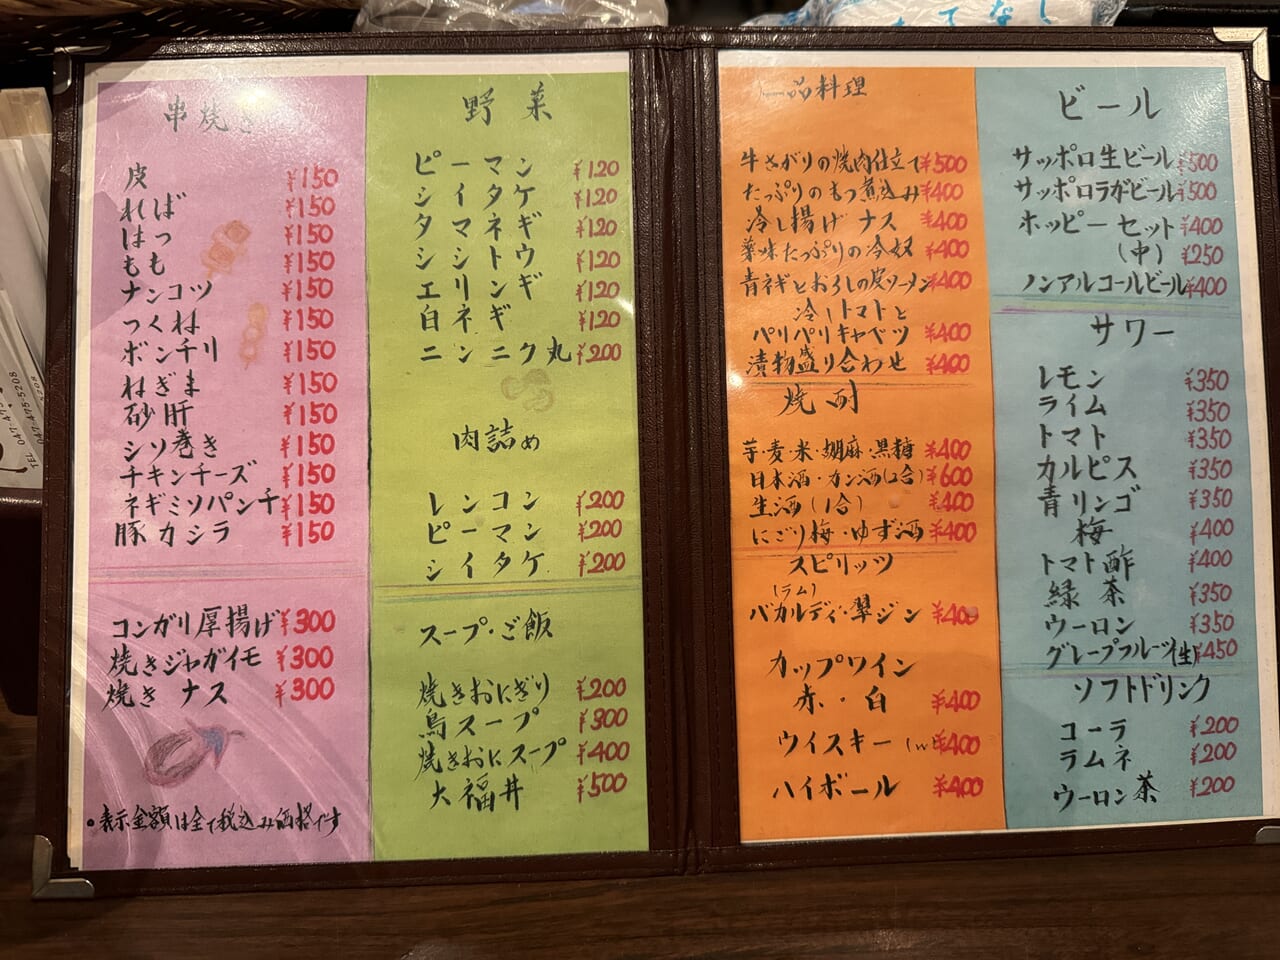 串焼き
皮 ¥150
ればー ¥150
はつ ¥150
もも ¥150
ナンコツ ¥150
つくね ¥150
ボンチリ ¥150
ねぎま ¥150
砂肝 ¥150
シソ巻き ¥150
チキンチーズ ¥150
ネギミソパンチ ¥150
豚カシラ ¥150
コンガリ厚揚げ ¥300
焼きジャガイモ ¥300
焼きナス ¥300
・表示金額は全て税込み価格です
野菜
ピーマン ¥120
シイタケ ¥120
タマネギ ¥120
シシトウ ¥120
エリンギ ¥120
白ネギ ¥120
ニンニク丸 ¥200
肉詰め
レンコン ¥200
ピーマン ¥200
シイタケ ¥200
スープ・ご飯
焼きおにぎり ¥200
鳥スープ ¥300
焼きおにスープ ¥400
大福丼 ¥500
一品料理
牛さがりの焼肉仕立て ¥500
たっぷりのもつ煮込み ¥400
冷し揚げナス ¥400
薬味たっぷりの冷奴 ¥400
青ネギとおろしの皮ラーメン ¥400
冷しトマトと
パリパリキャベツ ¥400
漬物盛り合わせ ¥400
焼酎
芋・麦・米・胡麻・黒糖 ¥400
日本酒・カン酒(2合) ¥600
生酒(1合) ¥400
にごり梅・ゆず酒 ¥400
スピリッツ
(ラム)
バカルディ・翠ジン ¥400
カップワイン
赤・白 ¥400
ウイスキー (W ¥400
ハイボール ¥400
ビール
サッポロ生ビール ¥500
サッポロラガビール ¥500
ホッピーセット ¥400
(中) ¥250
ノンアルコールビール ¥400
サワー
レモン ¥350
ライム ¥350
トマト ¥350
カルピス ¥350
青リンゴ ¥350
梅 ¥400
トマト酢 ¥400
緑茶 ¥350
ウーロン ¥350
グレープフルーツ(生) ¥450
ソフトドリンク
コーラ ¥200
ラムネ ¥200
ウーロン茶 ¥200
TEL 047-475-5208